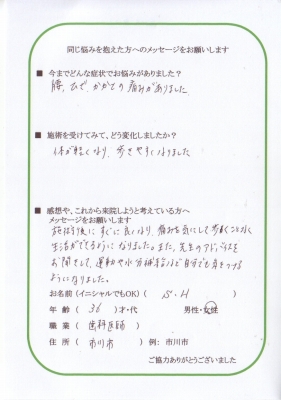 同じ悩みを抱えた方へのメッセージをお願いします
■ 今までどんな症状でお悩みがありましたか？
腰、ひざ、かかとの痛みがありました
■ 施術を受けてみて、どう変化しましたか？
体が軽くなり、歩きやすくなりました
■ 感想や、これから来院しようと考えている方へ
メッセージをお願いします
施術後にすぐに良くなり、痛みを気にして歩くことなく
生活ができるようになりました。また、先生のアドバイスを
お聞きして、運動や水分補給など自分でも気をつける
ようになりました。
お名前（イニシャルでもOK）（ S.H ）
年 齢（ 36 ）才・代 男性・女性
職 業（ 歯科医師 ）
住 所（ 市川市 ）例：市川市
ご協力ありがとうございました